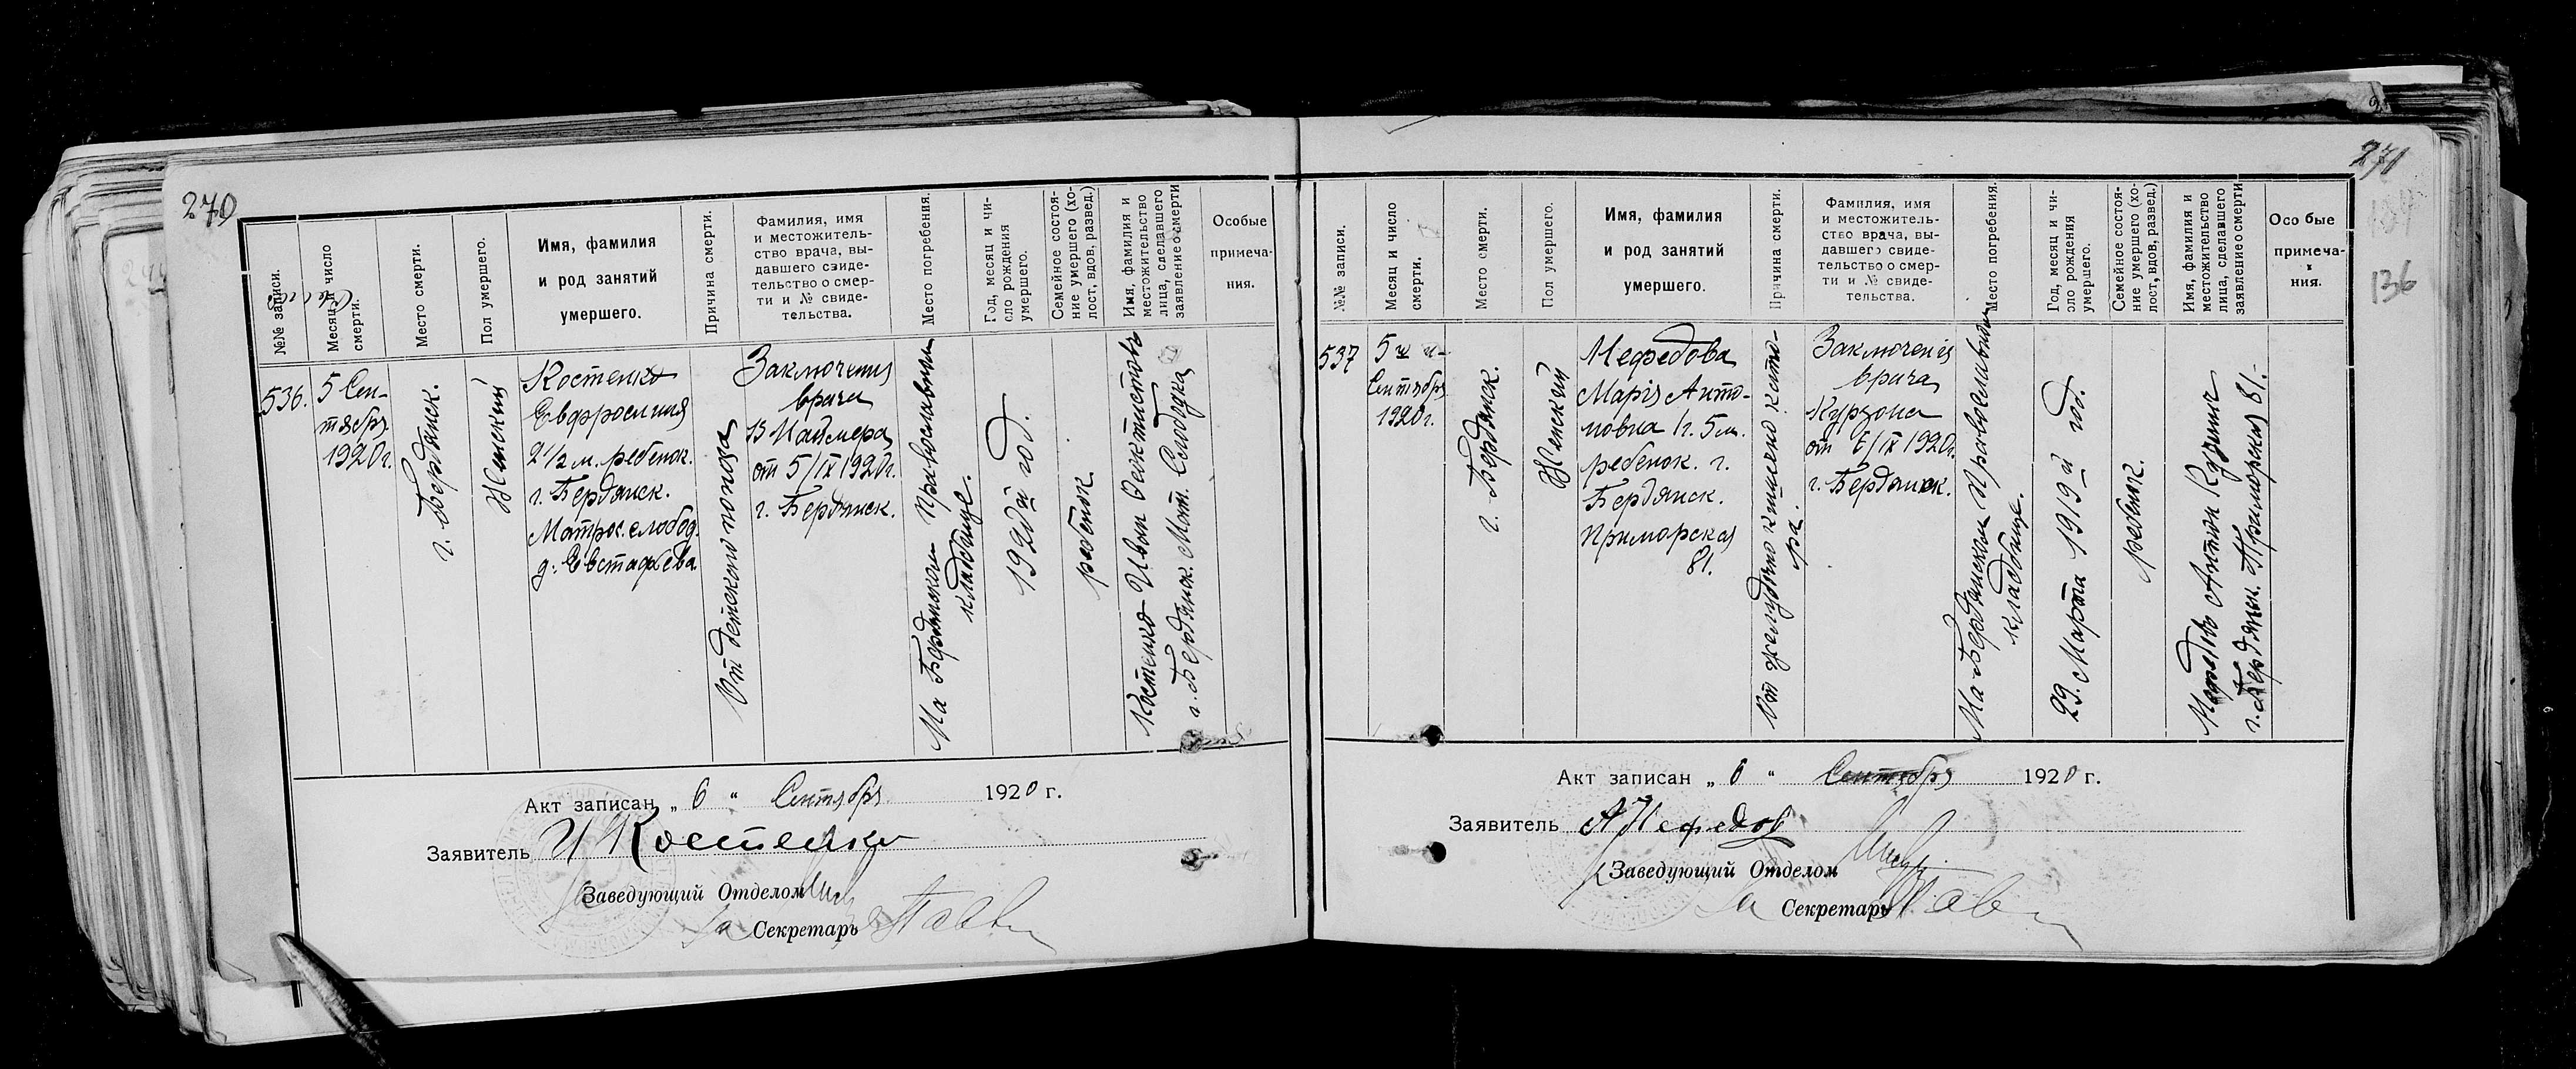 270
№№ записи.
Месяц и число
смерти.
Место смерти.
Пол умершего.
Имя, фамилия
и род занятий
умершего.
Причина смерти.
Фамилия, имя
и местожитель-
ство врача, вы-
давшего свиде-
тельство о смер-
ти и № свиде-
тельства.
Место погребения.
Год, месяц и чи-
сло рождения
умершего.
Семейное состоя-
ние умершего (хо-
лост, вдов, развед.)
Имя, фамилия и
местожительство
лица, сделавшего
заявление о смерти
Особые
примеча-
ния.
536.
5 Сен-
тября
1920 г.
г. Бердянск.
Женский
Костенко
Евфросиния
2½ м. ребенок.
г. Бердянск.
Матрос. слобод.
д. Евстафьева.
От детского поноса
Заключения
врача
от 5/IX 1920 г.
г. Бердянск.
На Бердянском Православном
кладбище.
1920й год.
ребенок
Костенко Иван Феоктистовъ
г. Бердянск. Мат. Слободка
Акт записан „ 6 “ Сентября 1920 г.
Заявитель И Костенко
Заведующий Отделом
За Секретарь
271
136
№№ записи.
Месяц и число
смерти.
Место смерти.
Пол умершего.
Имя, фамилия
и род занятий
умершего.
Причина смерти.
Фамилия, имя
и местожитель-
ство врача, вы-
давшего свиде-
тельство о смер-
ти и № свиде-
тельства.
Место погребения.
Год, месяц и чи-
сло рождения
умершего.
Семейное состоя-
ние умершего (хо-
лост, вдов, развед.)
Имя, фамилия и
местожительство
лица, сделавшего
заявление о смерти
Особые
примеча-
ния.
537
5
Сентября
1920 г.
г. Бердянск.
Женский
Нефедова
Марія Анто-
новна 1 г. 5 м.
ребенок. г.
Бердянск.
Приморская
81.
От желудочно кишечно ката-
ра.
Заключения
врача
Курзона
от 6/IX 1920 г.
г. Бердянск.
На Бердянском Православном
кладбище.
29. Марта 1919й год.
ребенок.
Нефедовъ Антон Кузьмич
г. Бердянск. Приморская 81.
Акт записан „ 6 “ Сентября 1920 г.
Заявитель А Нефедов
Заведующий Отделом
За Секретарь